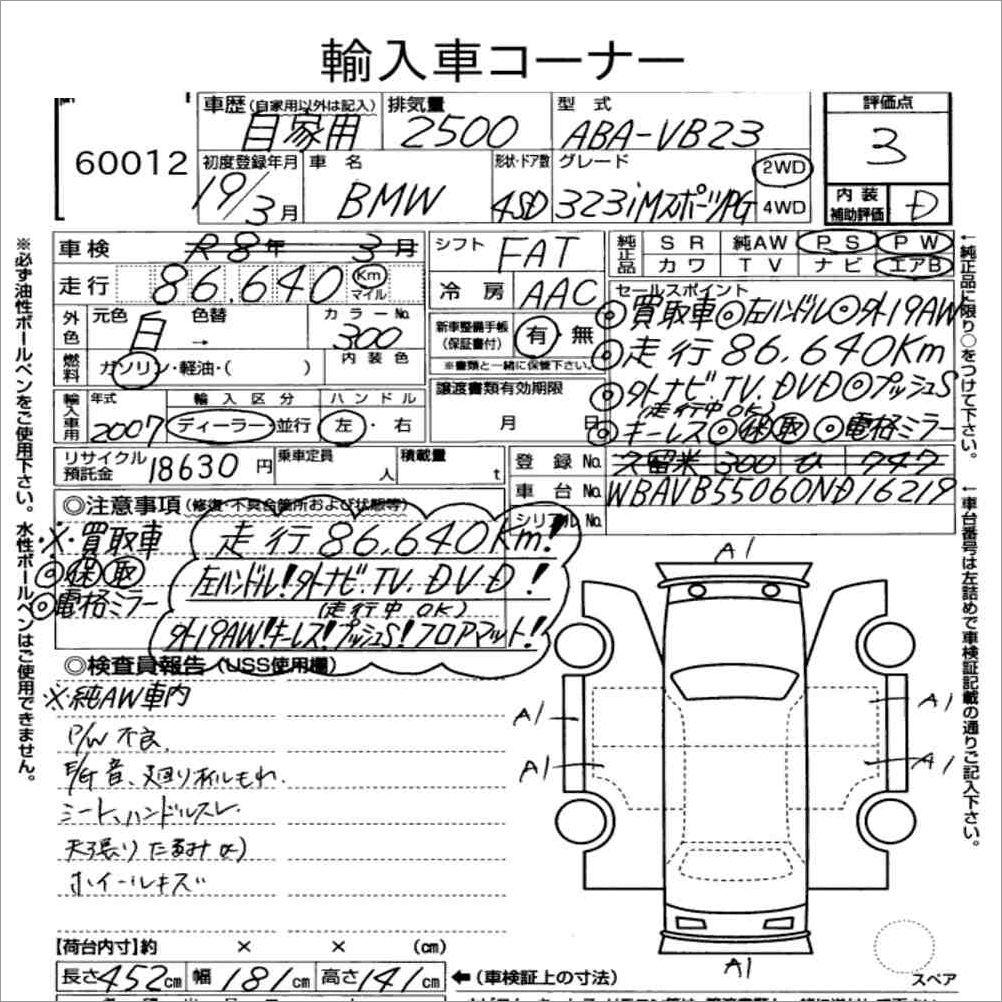 輸入車コーナー
60012
車歴(自家用以外は記入) 自家用
排気量 2500
型式 ABA-VB23
評価点 3
初度登録年月 19/3月
車名 BMW
形状・ドア数 4SD
グレード 323iMスポーツPG
2WD
4WD
内装補助評価 D
車検 R8年 3月
走行 86,640 Km マイル
外色 元色 白 → 色替 カラーNo. 300
燃料 ガソリン・軽油・( ) 内装色
輸入車用 年式 2007 輸入区分 ディーラー 並行 ハンドル 左・右
リサイクル預託金 18630円 乗車定員 人 積載量 t
シフト FAT
冷房 AAC
新車整備手帳(保証書付) 有・無
※書類と一緒に保管下さい。
譲渡書類有効期限
月 日
純正品 SR 純AW PS PW
カワ TV ナビ エアB
セールスポイント
◎買取車◎左ハンドル◎外19AW
◎走行86,640Km
◎外ナビ.TV.DVD◎プッシュS
(走行中OK)
◎キーレス◎保取◎電格ミラー
登録No. 久留米 300 ひ 747
車台No. WBAVB55060ND16219
シリアルNo.
◎注意事項(修復・不具合箇所および状態等)
※買取車
◎保取
◎電格ミラー
走行86,640Km!
左ハンドル!外ナビ.TV.DVD!
(走行中OK)
外19AW!キーレス!プッシュS!フロアマット!
◎検査員報告(USS使用欄)
※純AW車内
P/W不良
E/G音、廻りオイルもれ.
シート、ハンドルスレ
天張りたるみ
ホイールキズ
A1
A1
A1
A1
A1
A1
【荷台内寸】約 × × (cm)
長さ452cm 幅181cm 高さ141cm ←(車検証上の寸法)
スペア
※必ず油性ボールペンをご使用下さい。水性ボールペンはご使用できません。
←純正品に限り○をつけて下さい。
←車台番号は左詰めで車検証記載の通りご記入下さい。